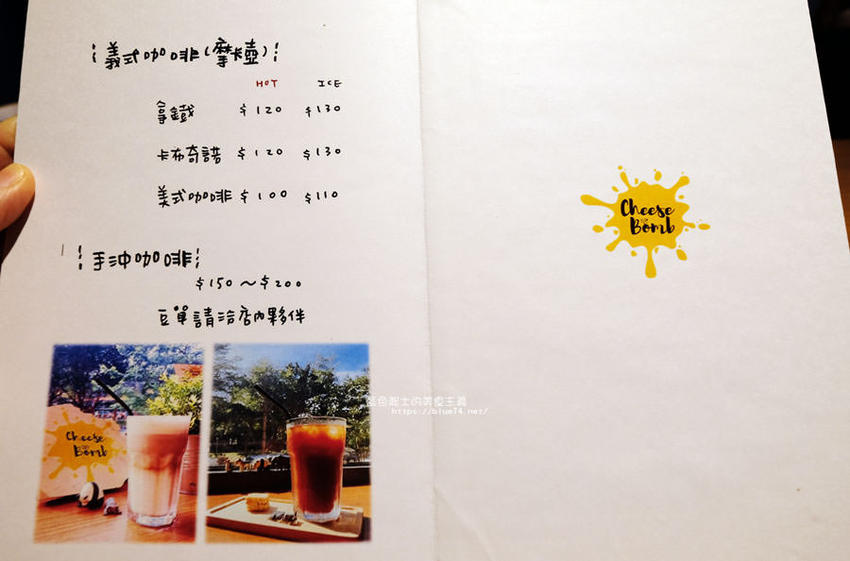 義式咖啡(摩卡壺)
HOT ICE
拿鐵 $120 $130
卡布奇諾 $120 $130
美式咖啡 $100 $110
手沖咖啡
$150～$200
豆單請洽店內夥伴
Cheese
Bomb
Cheese
Bomb
藍色起士的美食主義
https://blue74.net/